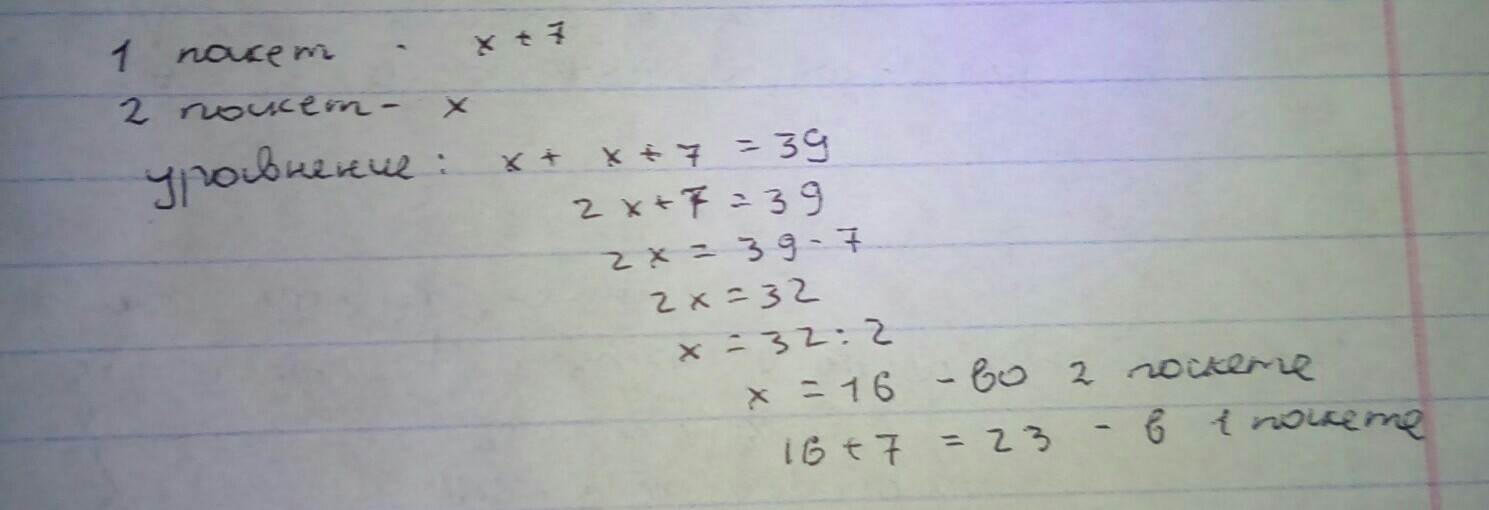 1 пакет - x + 7
2 пакет - x
уравнение: x + x + 7 = 39
2x + 7 = 39
2x = 39 - 7
2x = 32
x = 32 : 2
x = 16 - во 2 пакете
16 + 7 = 23 - в 1 пакете